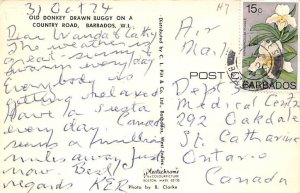 31 Oct 74
H7
OLD DONKEY DRAWN BUGGY ON A
COUNTRY ROAD, BARBADOS, W.I.
Dear Wanda & Cathy
The weather is
great
warm every day
Everybody is
getting relaxed
Have a siesta
every day.
seems a million
miles away just
now. Best
regards KER
Distributed by C. L. Pitt & Co. Ltd., Barbados, West Indies.
Mastichrome
BY COLOURPICTURE
BOSTON, MASS. 02130
Photo by B. Clarke
Air
Mail
15c
BARBADOS
POST
Dept
Medical Centre
292 Oakdale
St. Catharines
Ontario
Canada